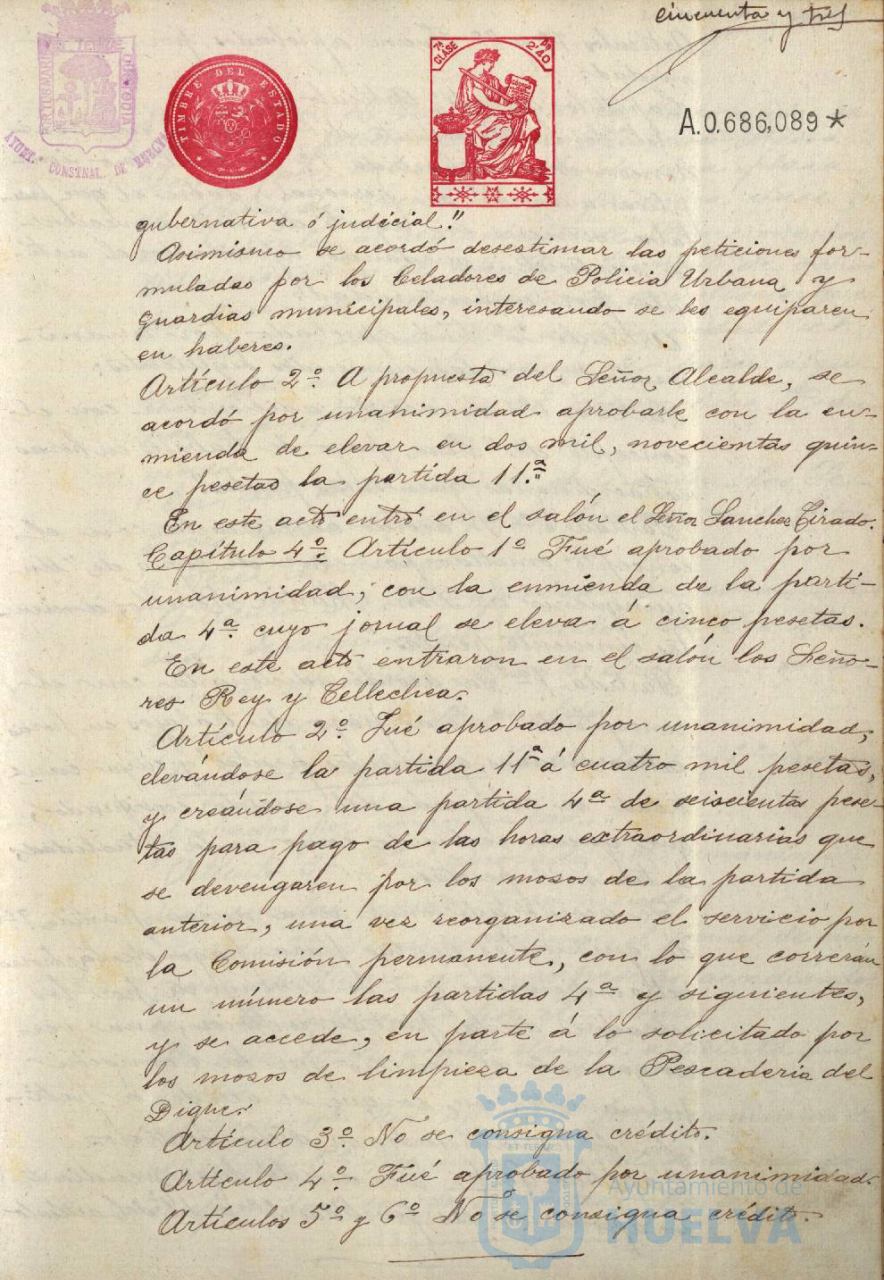 cincuenta y tres
PORTUS MARIS ET TERRÆ CUSTODIA
AYUNT. CONSTNAL. DE HUELVA
TIMBRE DEL ESTADO
7ª CLASE
2'40
A.0.686,089*
gubernativa ó judicial."
Asimismo se acordó desestimar las peticiones for-
muladas por los Celadores de Policia Urbana y
Guardias municipales, interesando se les equiparen
en haberes.
Artículo 2º. A propuesta del Señor Alcalde, se
acordó por unanimidad aprobarle con la en-
mienda de elevar en dos mil, novecientas quin-
ce pesetas la partida 11.ª
En este acto entró en el salón el Señor Sanchez Tirado.
Capítulo 4º. Artículo 1º Fué aprobado por
unanimidad, con la enmienda de la parti-
da 4ª. cuyo jornal se eleva á cinco pesetas.
En este acto entraron en el salón los Seño-
res Rey y Tellechea.
Artículo 2º. Fué aprobado por unanimidad,
elevándose la partida 11ª á cuatro mil pesetas,
y creándose una partida 4ª de seiscientas pese-
tas para pago de las horas extraordinarias que
se devengaren por los mozos de la partida
anterior, una vez reorganizado el servicio por
la Comisión permanente, con lo que correrán
un número las partidas 4ª y siguientes,
y se accede, en parte á lo solicitado por
los mozos de limpieza de la Pescadería del
Dique.
Artículo 3º. No se consigna crédito.
Artículo 4º. Fué aprobado por unanimidad.
Artículos 5º y 6º No se consigna crédito.
Ayuntamiento de
HUELVA